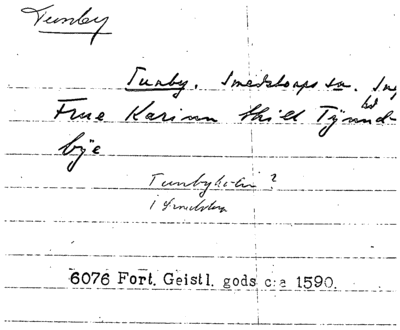 Tunby
Tunby. Smedstorps sn. Ing
Frue Karinn Skill Tÿnnd
bÿe
Tunbyholm ?
i Smedstorp
6076 Fort. Geistl. gods c:a 1590.